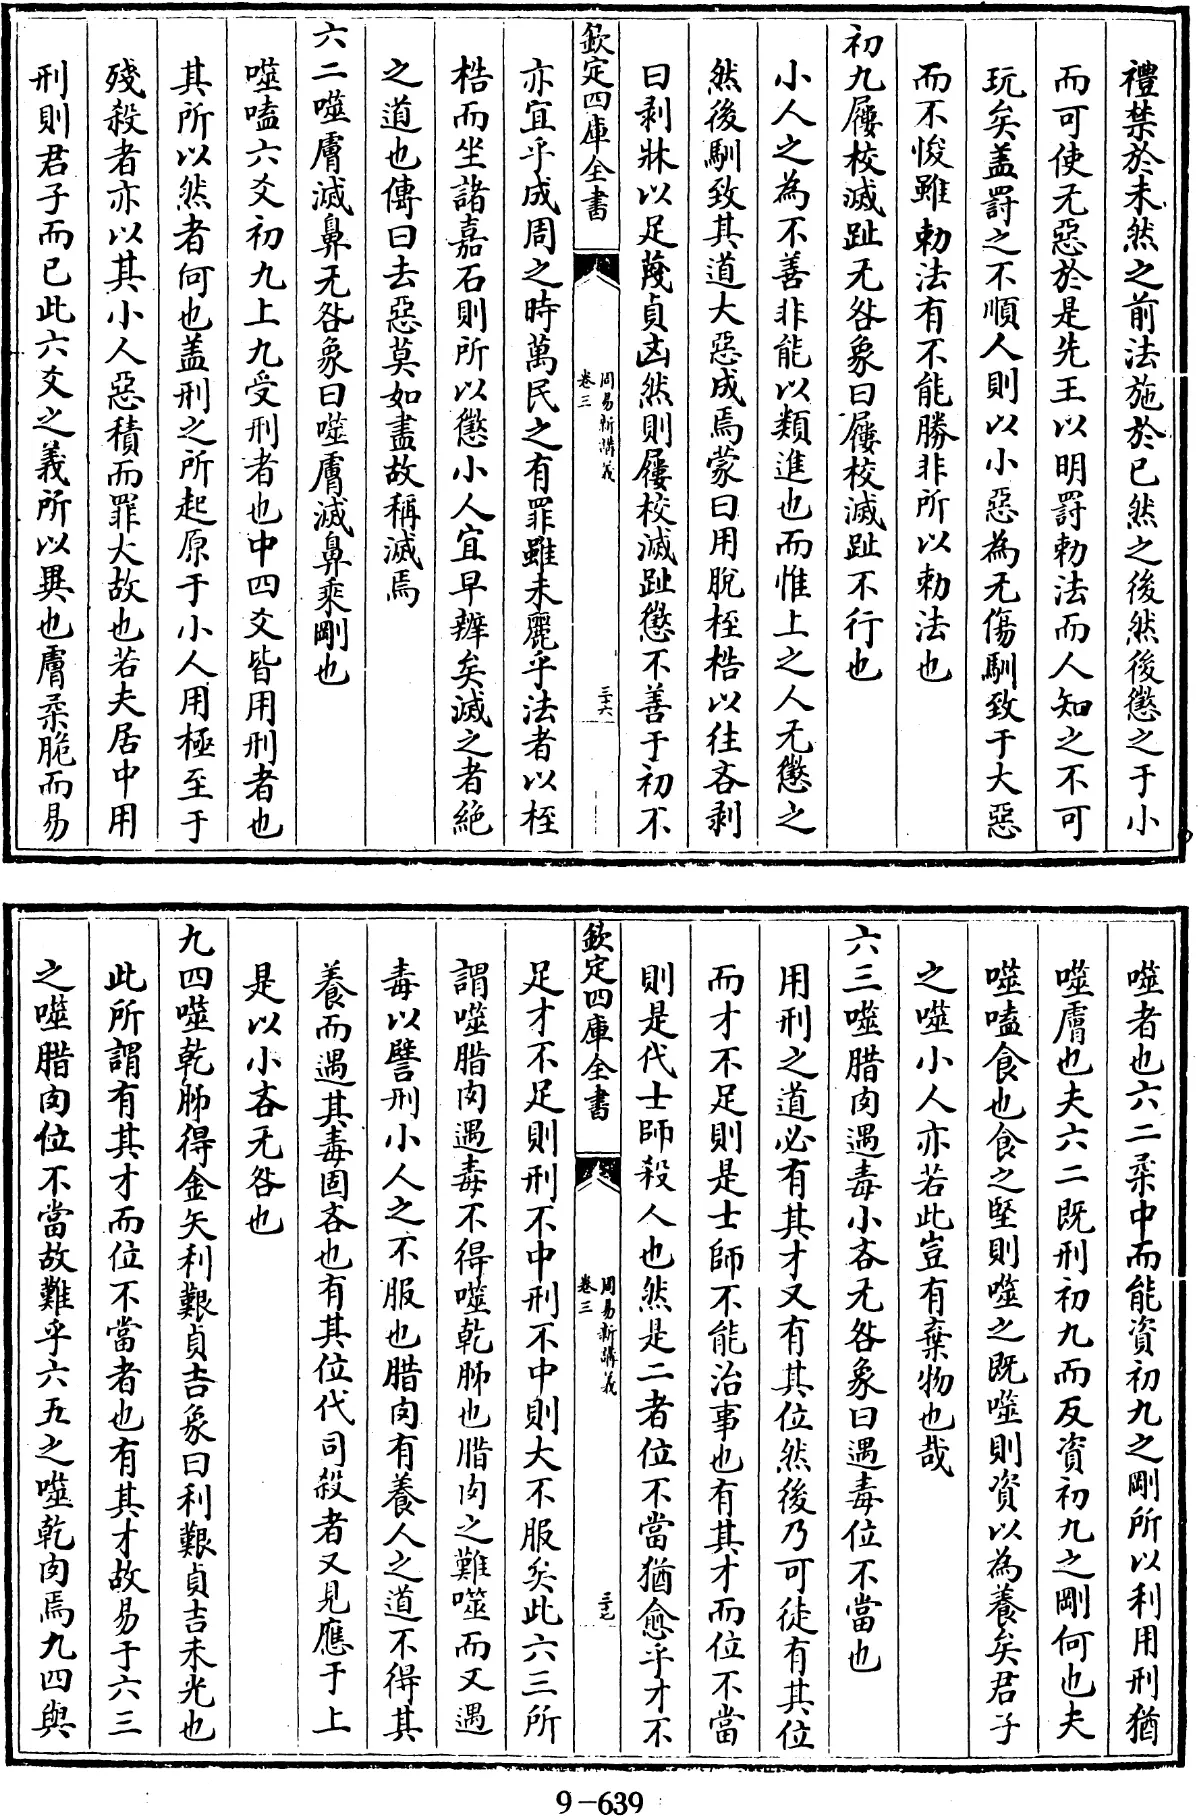 禮禁於未然之前法施於已然之後然後懲之于小
而可使无惡於是先王以明罰勅法而人知之不可
玩矣盖罰之不順人則以小惡為无傷馴致于大惡
而不悛雖勅法有不能勝非所以勅法也
初九屨校滅趾无咎象曰屨校滅趾不行也
小人之為不善非能以類進也而惟上之人无懲之
然後馴致其道大惡成焉蒙曰用脫桎梏以往吝剥
曰剥牀以足蔑貞凶然則屨校滅趾懲不善于初不
欽定四庫全書
周易新講義
卷三
三十六
亦宜乎成周之時萬民之有罪雖未麗乎法者以桎
梏而坐諸嘉石則所以懲小人宜早辨矣滅之者絶
之道也傳曰去惡莫如盡故稱滅焉
六二噬膚滅鼻无咎象曰噬膚滅鼻乘剛也
噬嗑六爻初九上九受刑者也中四爻皆用刑者也
其所以然者何也盖刑之所起原于小人用極至于
殘殺者亦以其小人惡積而罪大故也若夫居中用
刑則君子而已此六爻之義所以異也膚柔脆而易
噬者也六二柔中而能資初九之剛所以利用刑猶
噬膚也夫六二既刑初九而反資初九之剛何也夫
噬嗑食也食之堅則噬之既噬則資以為養矣君子
之噬小人亦若此豈有棄物也哉
六三噬腊肉遇毒小吝无咎象曰遇毒位不當也
用刑之道必有其才又有其位然後乃可徒有其位
而才不足則是士師不能治事也有其才而位不當
則是代士師殺人也然是二者位不當猶愈乎才不
欽定四庫全書
周易新講義
卷三
三十七
足才不足則刑不中刑不中則大不服矣此六三所
謂噬腊肉遇毒不得噬乾胏也腊肉之難噬而又遇
毒以譬刑小人之不服也腊肉有養人之道不得其
養而遇其毒固吝也有其位代司殺者又見應于上
是以小吝无咎也
九四噬乾胏得金矢利艱貞吉象曰利艱貞吉未光也
此所謂有其才而位不當者也有其才故易于六三
之噬腊肉位不當故難乎六五之噬乾肉焉九四與
9-639